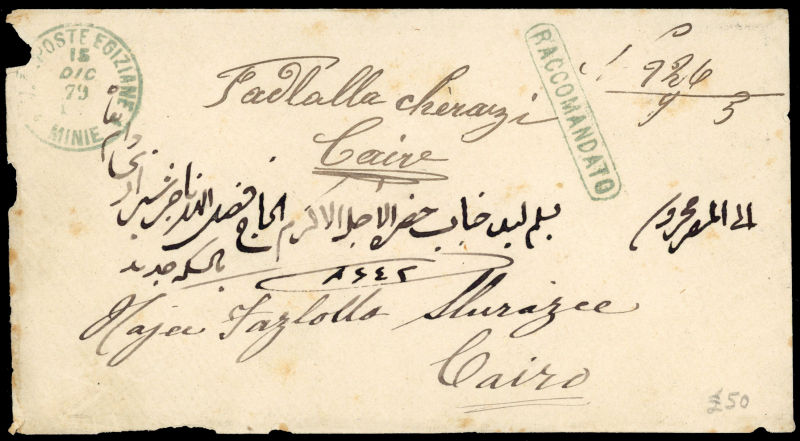 POSTE EGIZIANE
15
DIC
79
MINIE
RACCOMANDATO
926
9 5
Fadlalla chèrazi
Caire
الى المحروسه
يسلم ليد جناب حضرة الاجل الاكرم الحاج فضل الله تاجر شيرازى
بالسكه جديد
٨٦٤٢
Hajei Fazlollo Shirazee
Cairo
£50